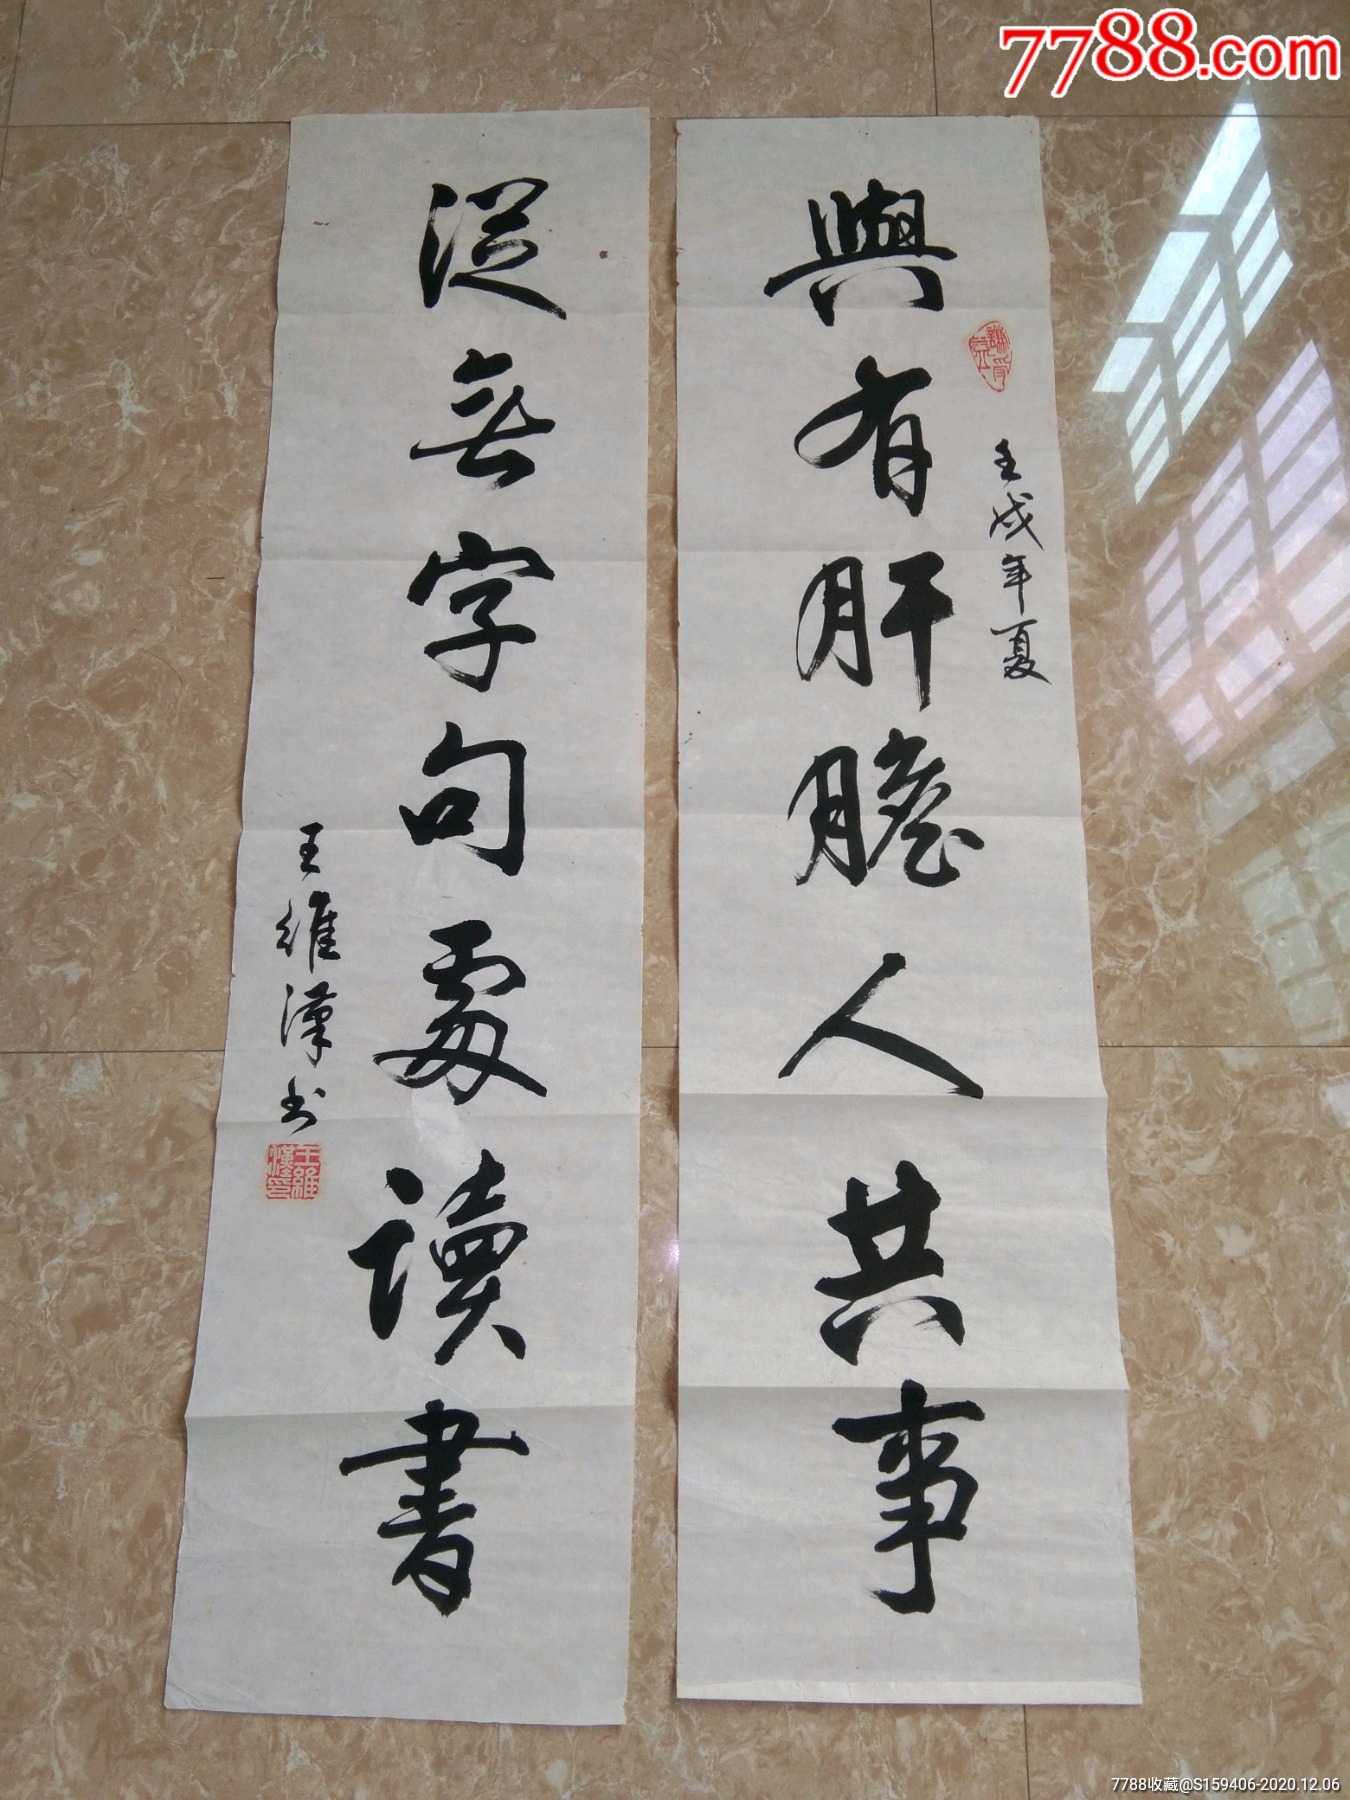 7788.com
與有肝膽人共事
壬戌年夏
從無字句處讀書
王維漢书
王維漢印
7788收藏@S159406-2020.12.06